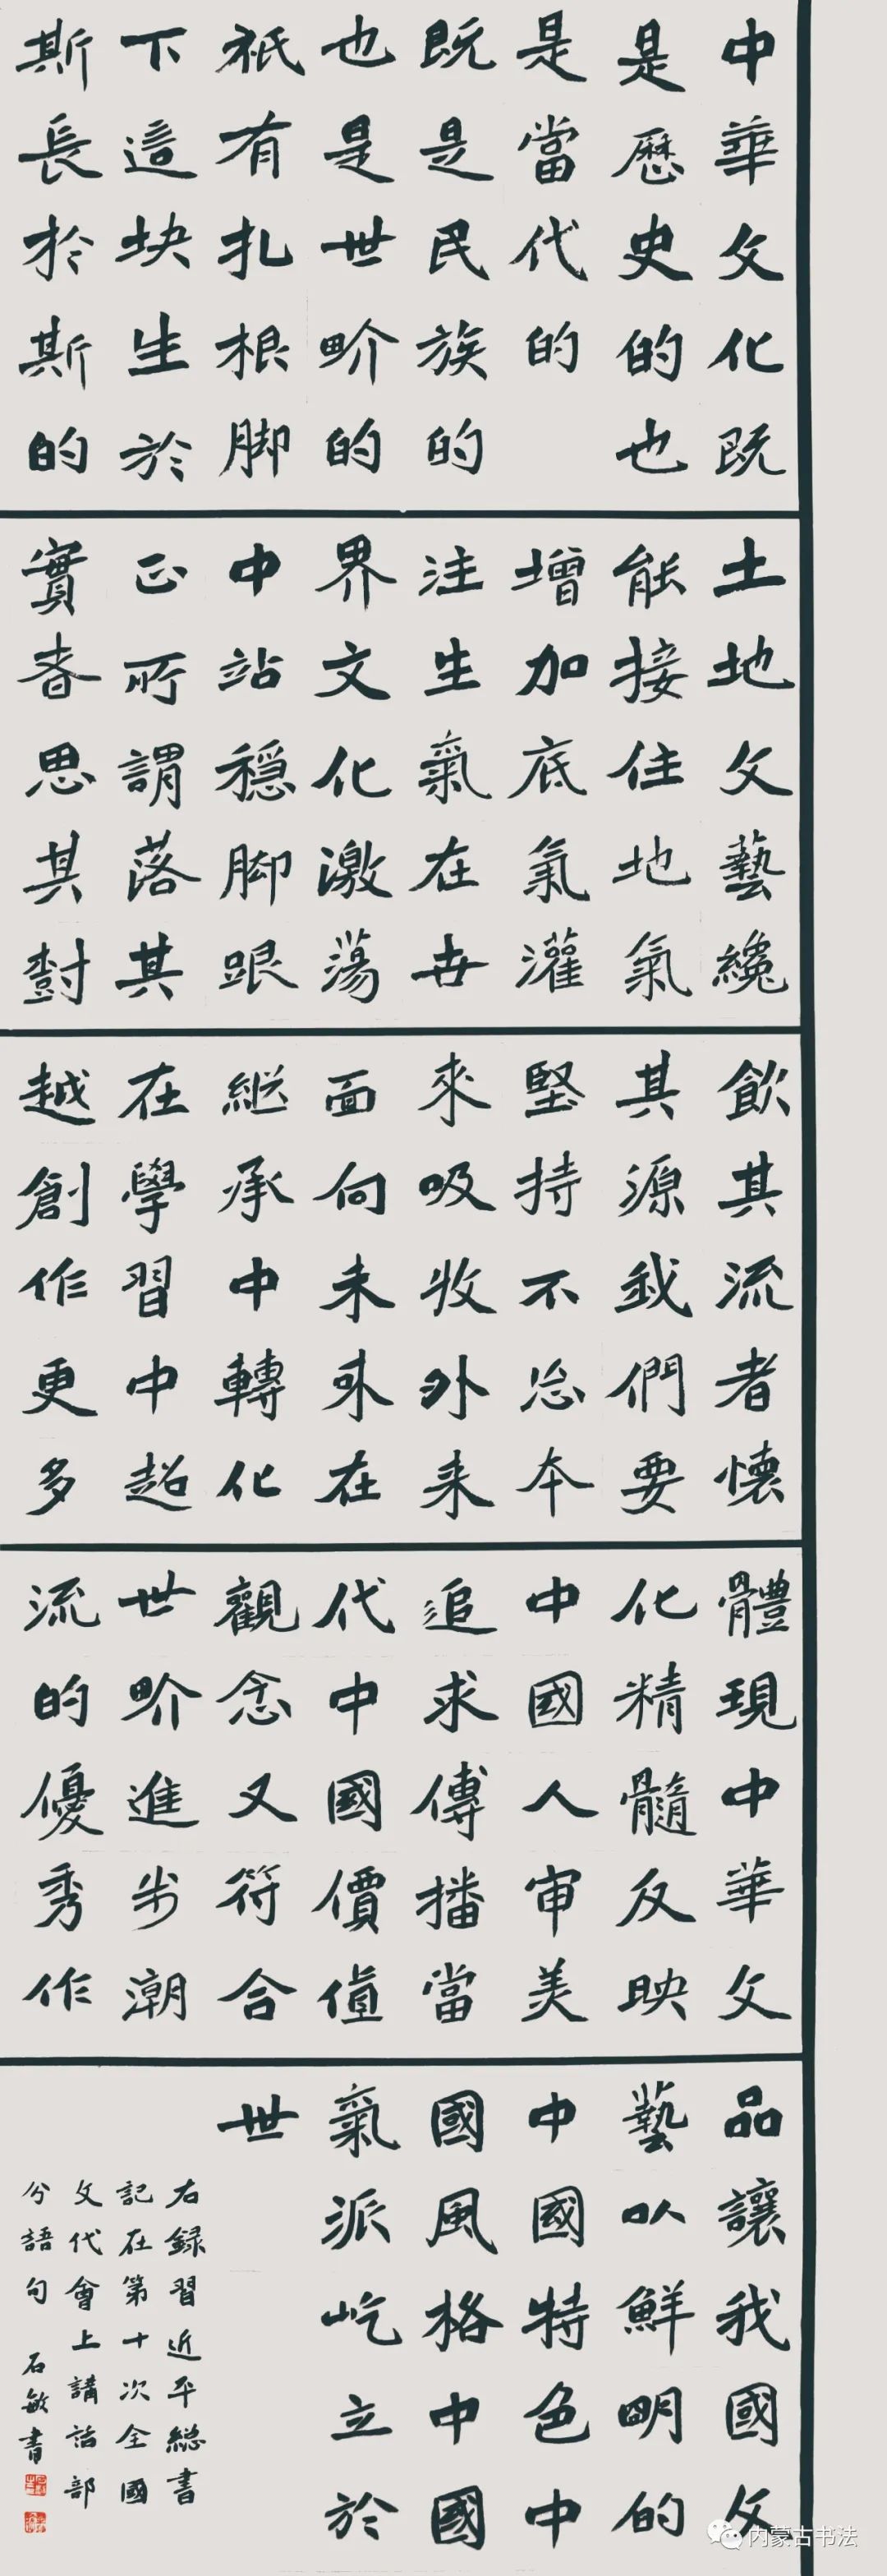 中華文化既
是歷史的也
是當代的
既是民族的
也是世界的
衹有扎根脚
下這块生於
斯長於斯的
土地文藝纔
能接住地氣
增加底氣灌
注生氣在世
界文化激蕩
中站穩脚跟
正所謂落其
實者思其樹
飲其流者懷
其源我們要
堅持不忘本
來吸收外来
面向未來在
継承中轉化
在學習中超
越創作更多
體現中華文
化精髓反映
中國人审美
追求傳播當
代中國價值
觀念又符合
世界進步潮
流的優秀作
品讓我國文
藝以鮮明的
中國特色中
國風格中國
氣派屹立於
世
右録習近平総書
記在第十次全國
文代會上講話部
分語句 石敏書
内蒙古书法